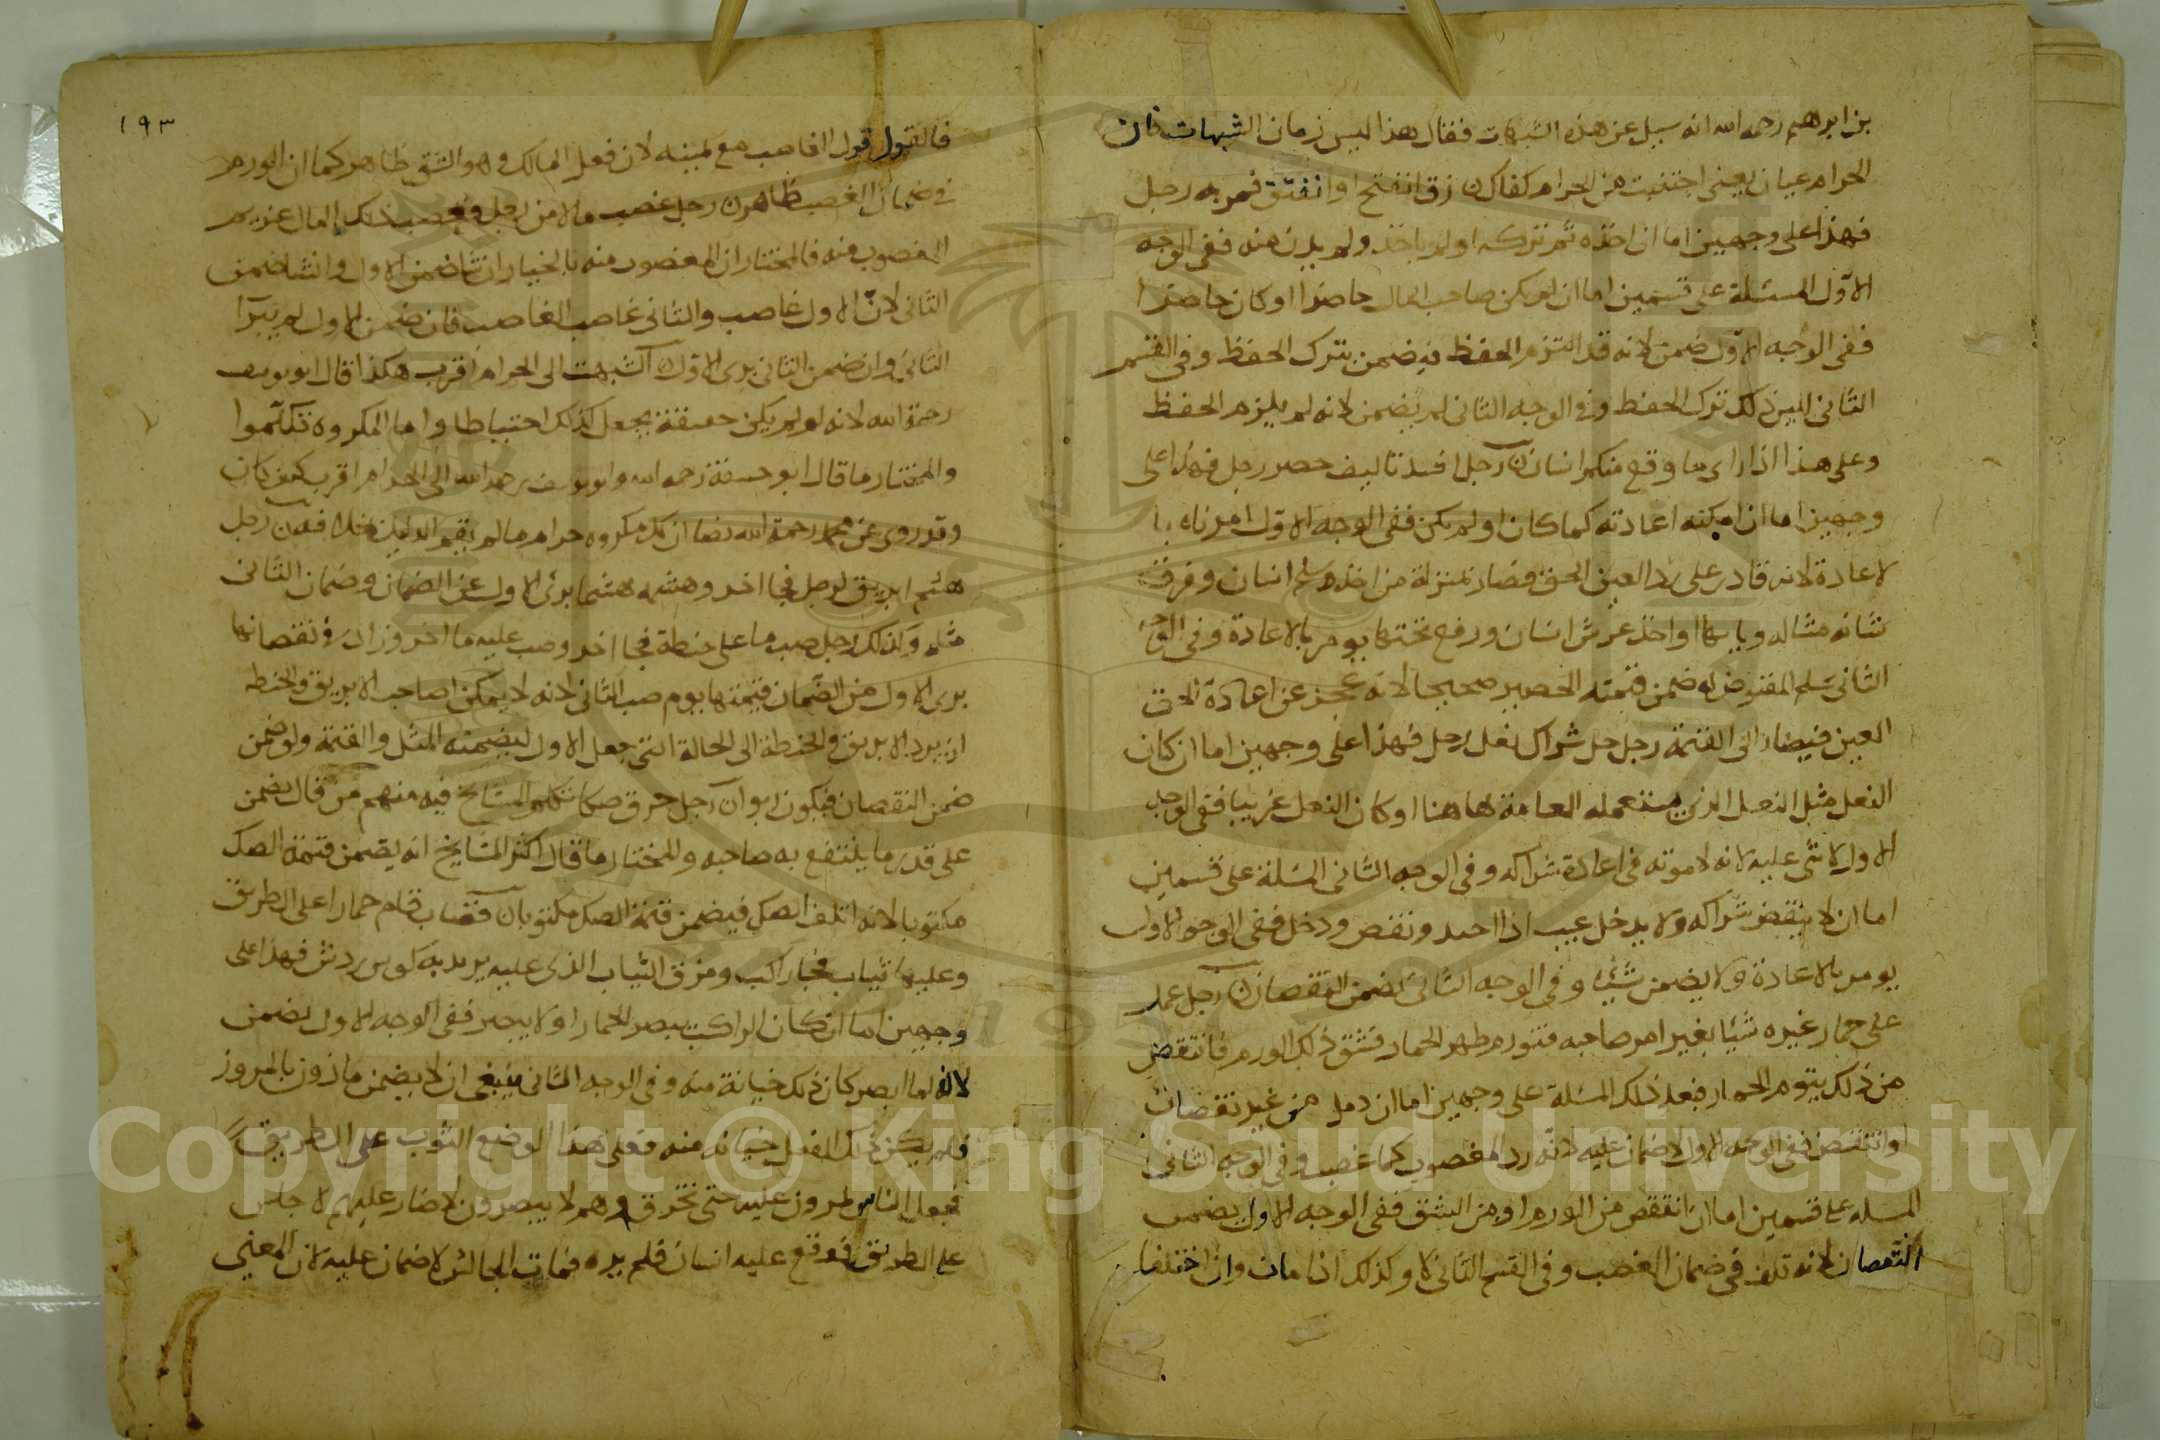 بن ابرهيم رحمه الله انه سيل عن هذه الشبهات فقال هذا ليس زمان الشبهات فان
الحرام عيان يعنى اجتنبت من الحرام كفاك ن زق انفتح او انفتق فمر به رجل
فهذا على وجهين اما ان اخذه ثم تركه او لم ياخذ ولم يدن منه ففى الوجه
الاول المسئلة على قسمين اما ان لم يكن صاحب المال حاضرا او كان حاضرا
ففى الوجه الاول ضمن لانه قد التزم الحفظ فيضمن بترك الحفظ وفى القسم
الثانى ليس ذلك ترك الحفظ وفى الوجه الثانى لم يضمن لانه لم يلتزم الحفظ
وعلى هذا اذا راى ما وقع منكم انسان ن رجل افسد تاليف حصير رجل فهذا على
وجهين اما ان امكنه اعادته كما كان او لم يكن ففى الوجه الاول امرناه با
لاعادة لانه قادر على رد العين الحق فصار بمنزلة من اخذ سلم انسان وفرق
او اخذ عرش انسان ورفع تختها يومر بالاعادة وفى الوجه
الثانى سلم المنقوض له ضمن قيمته الحصير صحيحا لانه عجز عن اعادة الحق
العين فيصار الى القيمة رجل حل شراك نعل رجل فهذا على وجهين اما ان كان
النعل مثل النعل الذى يستعمله العامة هاهنا او كان النعل عربيا ففى الوجه
الاول لا شى عليه لانه لا موتة فى اعادة شراكه وفى الوجه الثانى المسلة على قسمين
اما ان لا ينقض شراكه ولا يدخل عيب اذا اعيد وتنقض ودخل ففى الوجه الاول
يومر بالاعادة ولا يضمن شيئا وفى الوجه الثانى يضمن النقصان ن رجل حمل
على حمار غيره شيئا بغير امر صاحبه فتورم ظهر الحمار فشق ذلك الورم فانتقض
من ذلك يتوم الحمار فبعد ذلك المسلة على وجهين اما ان دمل من غير نقصان
او انتقض ففى الوجه الاول لا ضمان عليه لانه رد المغصوب كما غصب وفى الوجه الثانى
المسله على قسمين اما ان انتقض من الورم او من الشق ففى الوجه الاول يضمن
النقصان لانه تلف فى ضمان الغصب وفى القسم الثانى لا وكذلك اذا مات وان اختلفا
١٩٣
فالقول قول الغاصب مع يمينه لان فعل المالك وهو الشق ظاهر كما ان الورم
فى ضمان الغصب ظاهر ن رجل غصب مالا من رجل فغصب ذلك المال غريم
المغصوب منه فالمختار ان المغصوب منه بالخيار ان شا ضمن الاول وان شا ضمن
الثانى لان الاول غاصب والثانى غاصب الغاصب فان ضمن الاول لم يبرا
الثانى وان ضمن الثانى برى الاول الشبهت الى الحرام اقرب هكذا قال ابو يوسف
رحمة الله لانه لو لم يكن حقيقة يجعل كذلك احتياطا واما المكروه تكلموا
والمختار ما قال ابو حنيفة رحمه الله وابو يوسف رحمه الله الى الحرام اقرب كيف كان
وقد روى عن محمد رحمة الله نصا ان كل مكروه حرام ما لم يقم الدليل بخلافه ن رجل
هشم ابريق لرجل فجا اخر وهشمه هشما برئ الاول عن الضمان وضمان الثانى
مثله وكذلك رجل صب ما على حنطة فجا اخر وصب عليه ما اخر وزاد فى نقصانها
برى الاول من الضمان قيمتها يوم صب الثانى لانه لا يمكن صاحب الابريق والحنطه
ان يرد الابريق والحنطة الى الحالة التى جعل الاول ليضمنه المثل والقيمة ولو ضمن
ضمن النقصان فيكون ربوا ن رجل خرق صكا تكلم المشايخ فيه منهم من قال يضمن
على قدر ما ينتفع به صاحبه والمختار ما قال اكثر المشايخ انه يضمن قيمة الصك
مكتوبا لانه اتلف الصك فيضمن قيمة الصك مكتوبا ن قصاب قام حمارا على الطريق
وعليها ثياب فجا راكب ومزق الثياب الذى عليه فهذا على
وجهين اما ان كان الراكب يبصر الحمار او لا يبصر ففى الوجه الاول يضمن
لانه لما ابصر كان ذلك خيانة منه وفى الوجه الثانى ينبغى ان لا يضمن ماذون بالمرور
فلم يكن ذلك الفعل خيانه منه فعلى هذا الوضع الثوب على الطريق
فجعل الناس يمرون عليه حتى تخرق وهم لا يبصرون لا ضار عليهم لا جلس
على الطريق فوقع عليه انسان فلم يره فمات الجالس لا ضمان عليه لان المعنى
Copyright © King Saud University
1957